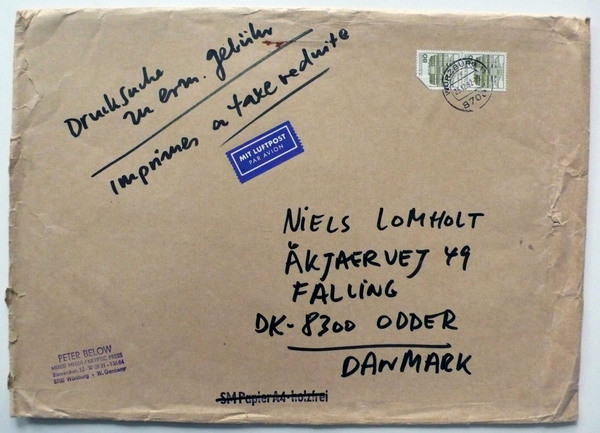 Drucksache
zu erm. gebühr
imprimes a taxe reduite
MIT LUFTPOST
PAR AVION
80
WÜRZBURG
8700
NIELS LOMHOLT
ÅKJAERVEJ 49
FALLING
DK-8300 ODDER
DANMARK
PETER BELOW
MIXED MEDIA / KRYPTIC PRESS
8700 Würzburg • W. Germany
SM Papier A4 - h.olzfrei